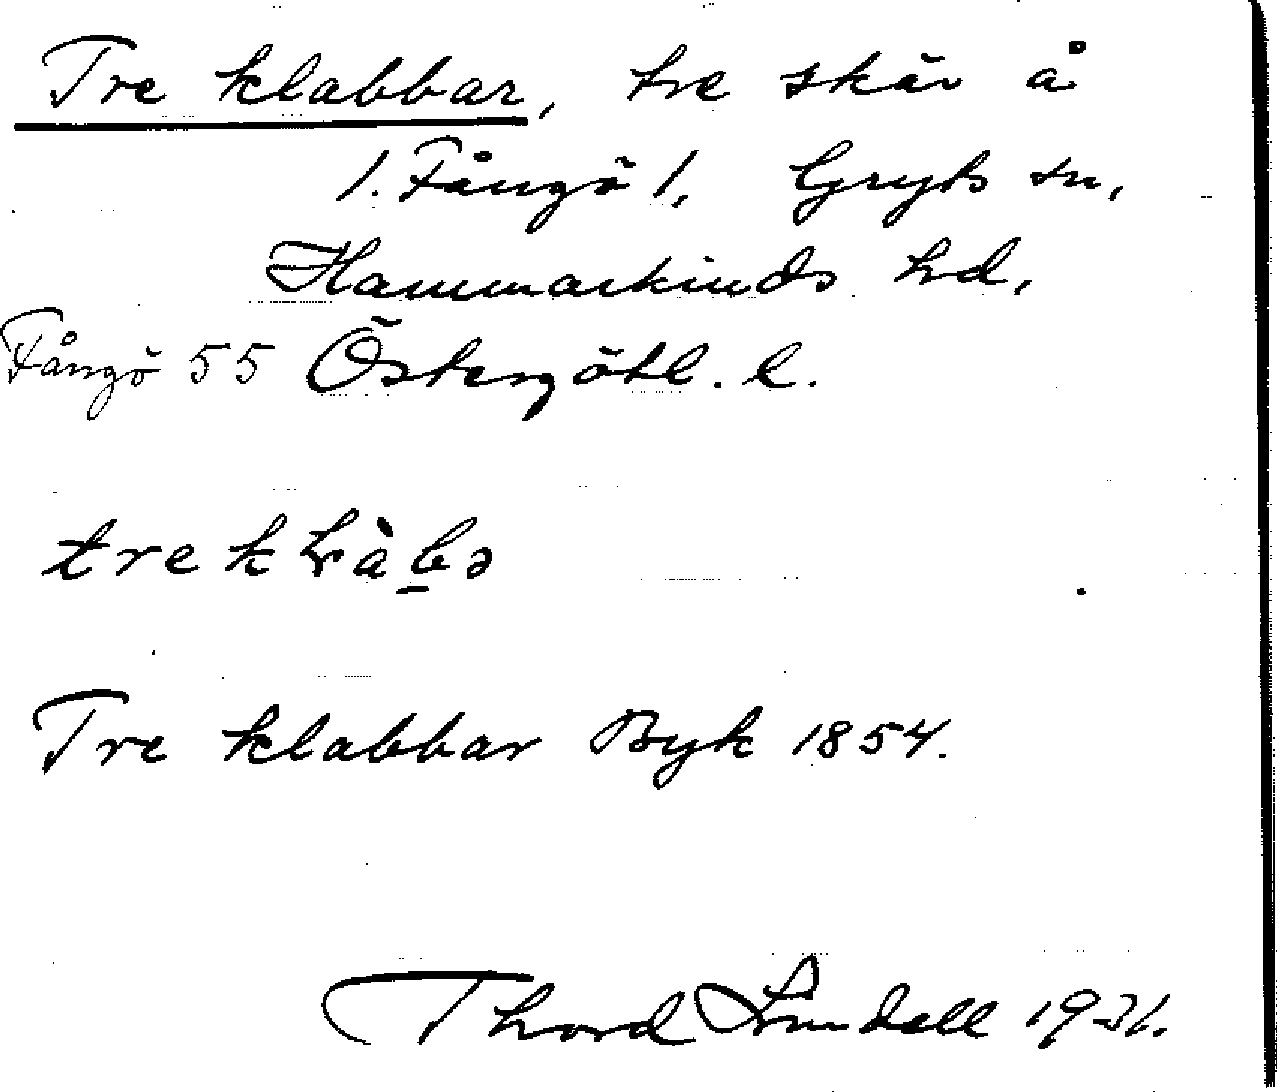 Tre klabbar, tre skär å
1. Fångö 1. Gryts sn,
Hammarkinds hd,
Fångö 55 Östergötl. l.
tre kłàb̲ə
Tre klabbar Byk 1854.
Thord Lindell 1931.